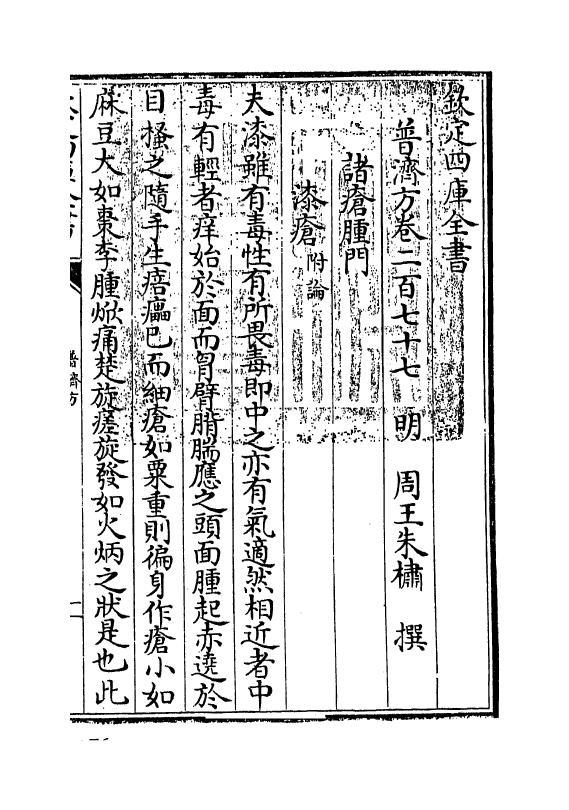 欽定四庫全書
普濟方卷二百七十七 明 周王朱橚 撰
諸瘡腫門
漆瘡附論
夫漆雖有毒性有所畏毒即中之亦有氣適然相近者中
毒有輕者痒始於面而胷臂䏶腨應之頭面腫起赤遶於
目搔之隨手生㾦㿔已而細瘡如粟重則徧身作瘡小如
麻豆大如棗李腫焮痛楚旋瘥旋發如火炳之狀是也此
普濟方